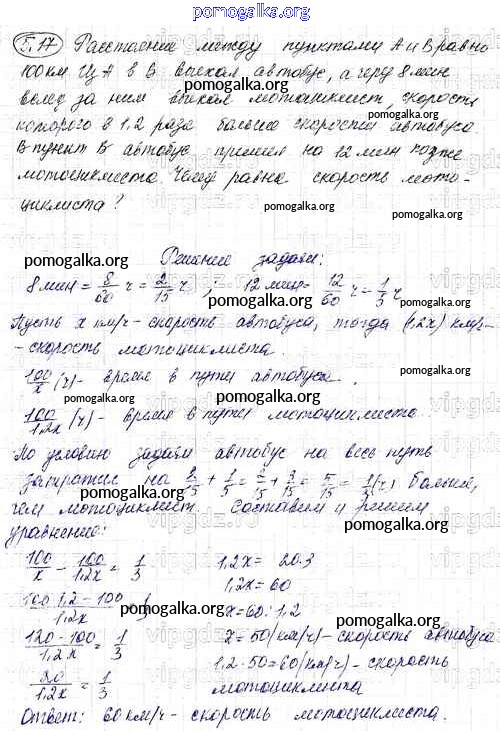 pomogalka.org
5.17 Расстояние между пунктами А и В равно
100 км. Из А в В выехал автобус, а через 8 мин
pomogalka.org
вслед за ним выехал мотоциклист, скорость
которого в 1,2 раза больше скорости автобуса
В пункт В автобус пришел на 12 мин позже
мотоциклиста. Чему равна скорость мото-
циклиста?
pomogalka.org
pomogalka.org
Решение задачи:
8 мин = 8/60 ч = 2/15 ч ; 12 мин = 12/60 ч = 1/5 ч
pomogalka.org
Пусть x км/ч - скорость автобуса, тогда (1,2x) км/ч-
- скорость мотоциклиста.
pomogalka.org
100/x (ч) - время в пути автобуса.
100/1,2x (ч) - время в пути мотоциклиста.
pomogalka.org
По условию задачи автобус на весь путь
затратил на 2/15 + 1/5 = 2/15 + 3/15 = 5/15 = 1/3 (ч) больше,
pomogalka.org
чем мотоциклист. Составим и решим
уравнение:
pomogalka.org
100/x - 100/1,2x = 1/3 1,2x = 20·3
1,2x = 60
100·1,2-100/1,2x = 1/3 x = 60 : 1,2
pomogalka.org
120-100/1,2x = 1/3 x = 50 (км/ч) - скорость автобуса
pomogalka.org
20/1,2x = 1/3 1,2·50 = 60 (км/ч) - скорость
мотоциклиста
pomogalka.org
Ответ: 60 км/ч - скорость мотоциклиста.